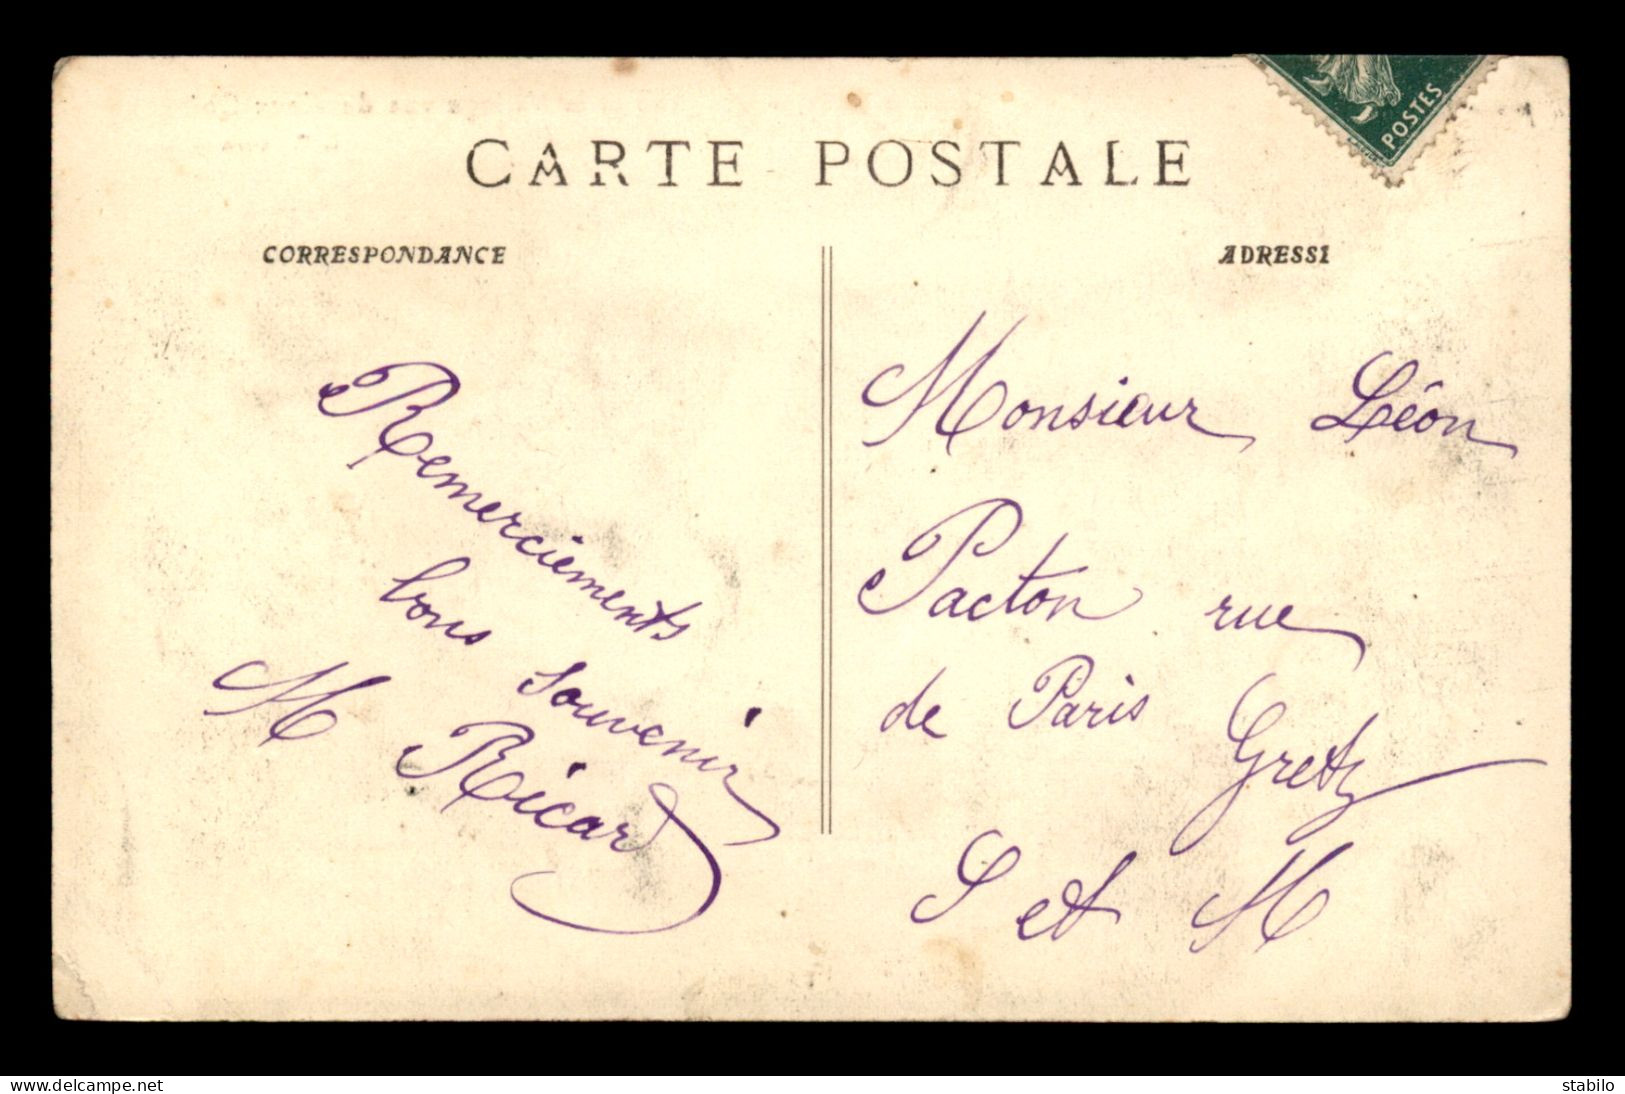 CARTE POSTALE
POSTES
CORRESPONDANCE
ADRESSE
Remerciements
bons souvenir
M Ricard
Monsieur Léon
Pacton rue
de Paris Gretz
S et M
delcampe.net
stabilo